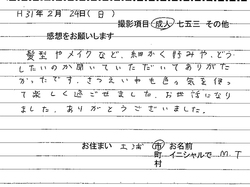 H31年2月24日(日)
撮影項目 成人 七五三 その他
感想をお願いします
髪型やメイクなど、細かく好みや、どう
したいのか聞いていただいてありがた
かったです。さつえいも色々気を使っ
て楽しく過ごせました。お世話になり
ました。ありがとうございました。
お住まい 市 お名前
町 イニシャルで M.T
村